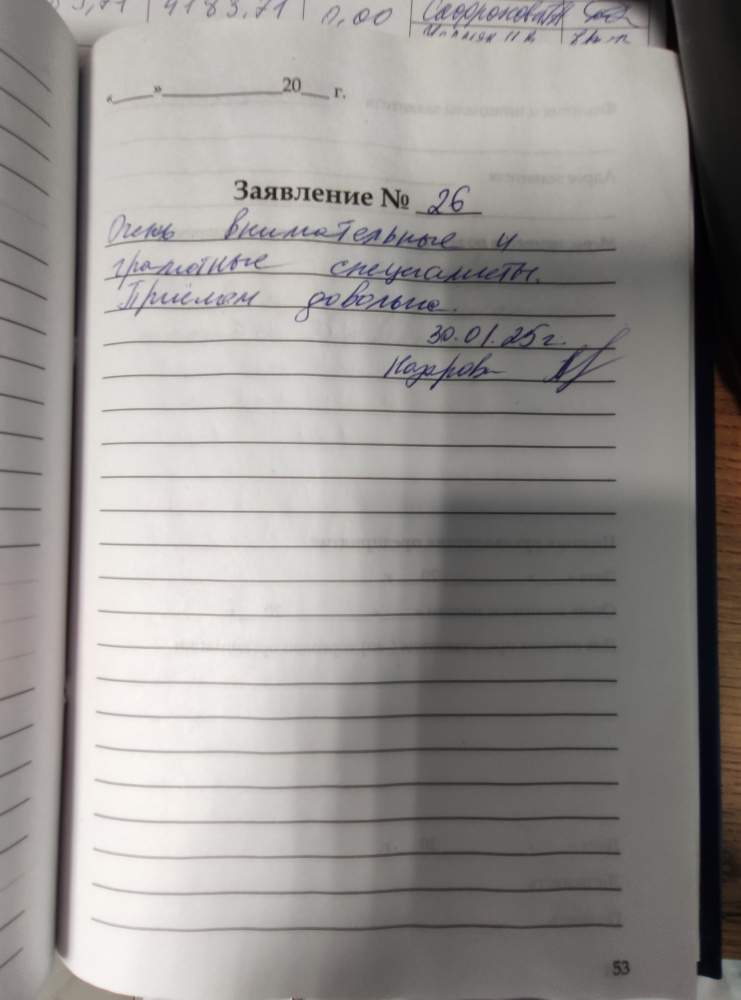 4183,71 0,00
«___»____________20___ г.
Заявление № 26
Очень внимательные и
грамотные специалисты.
Приёмом довольна.
30.01.25г.
Назарова
53